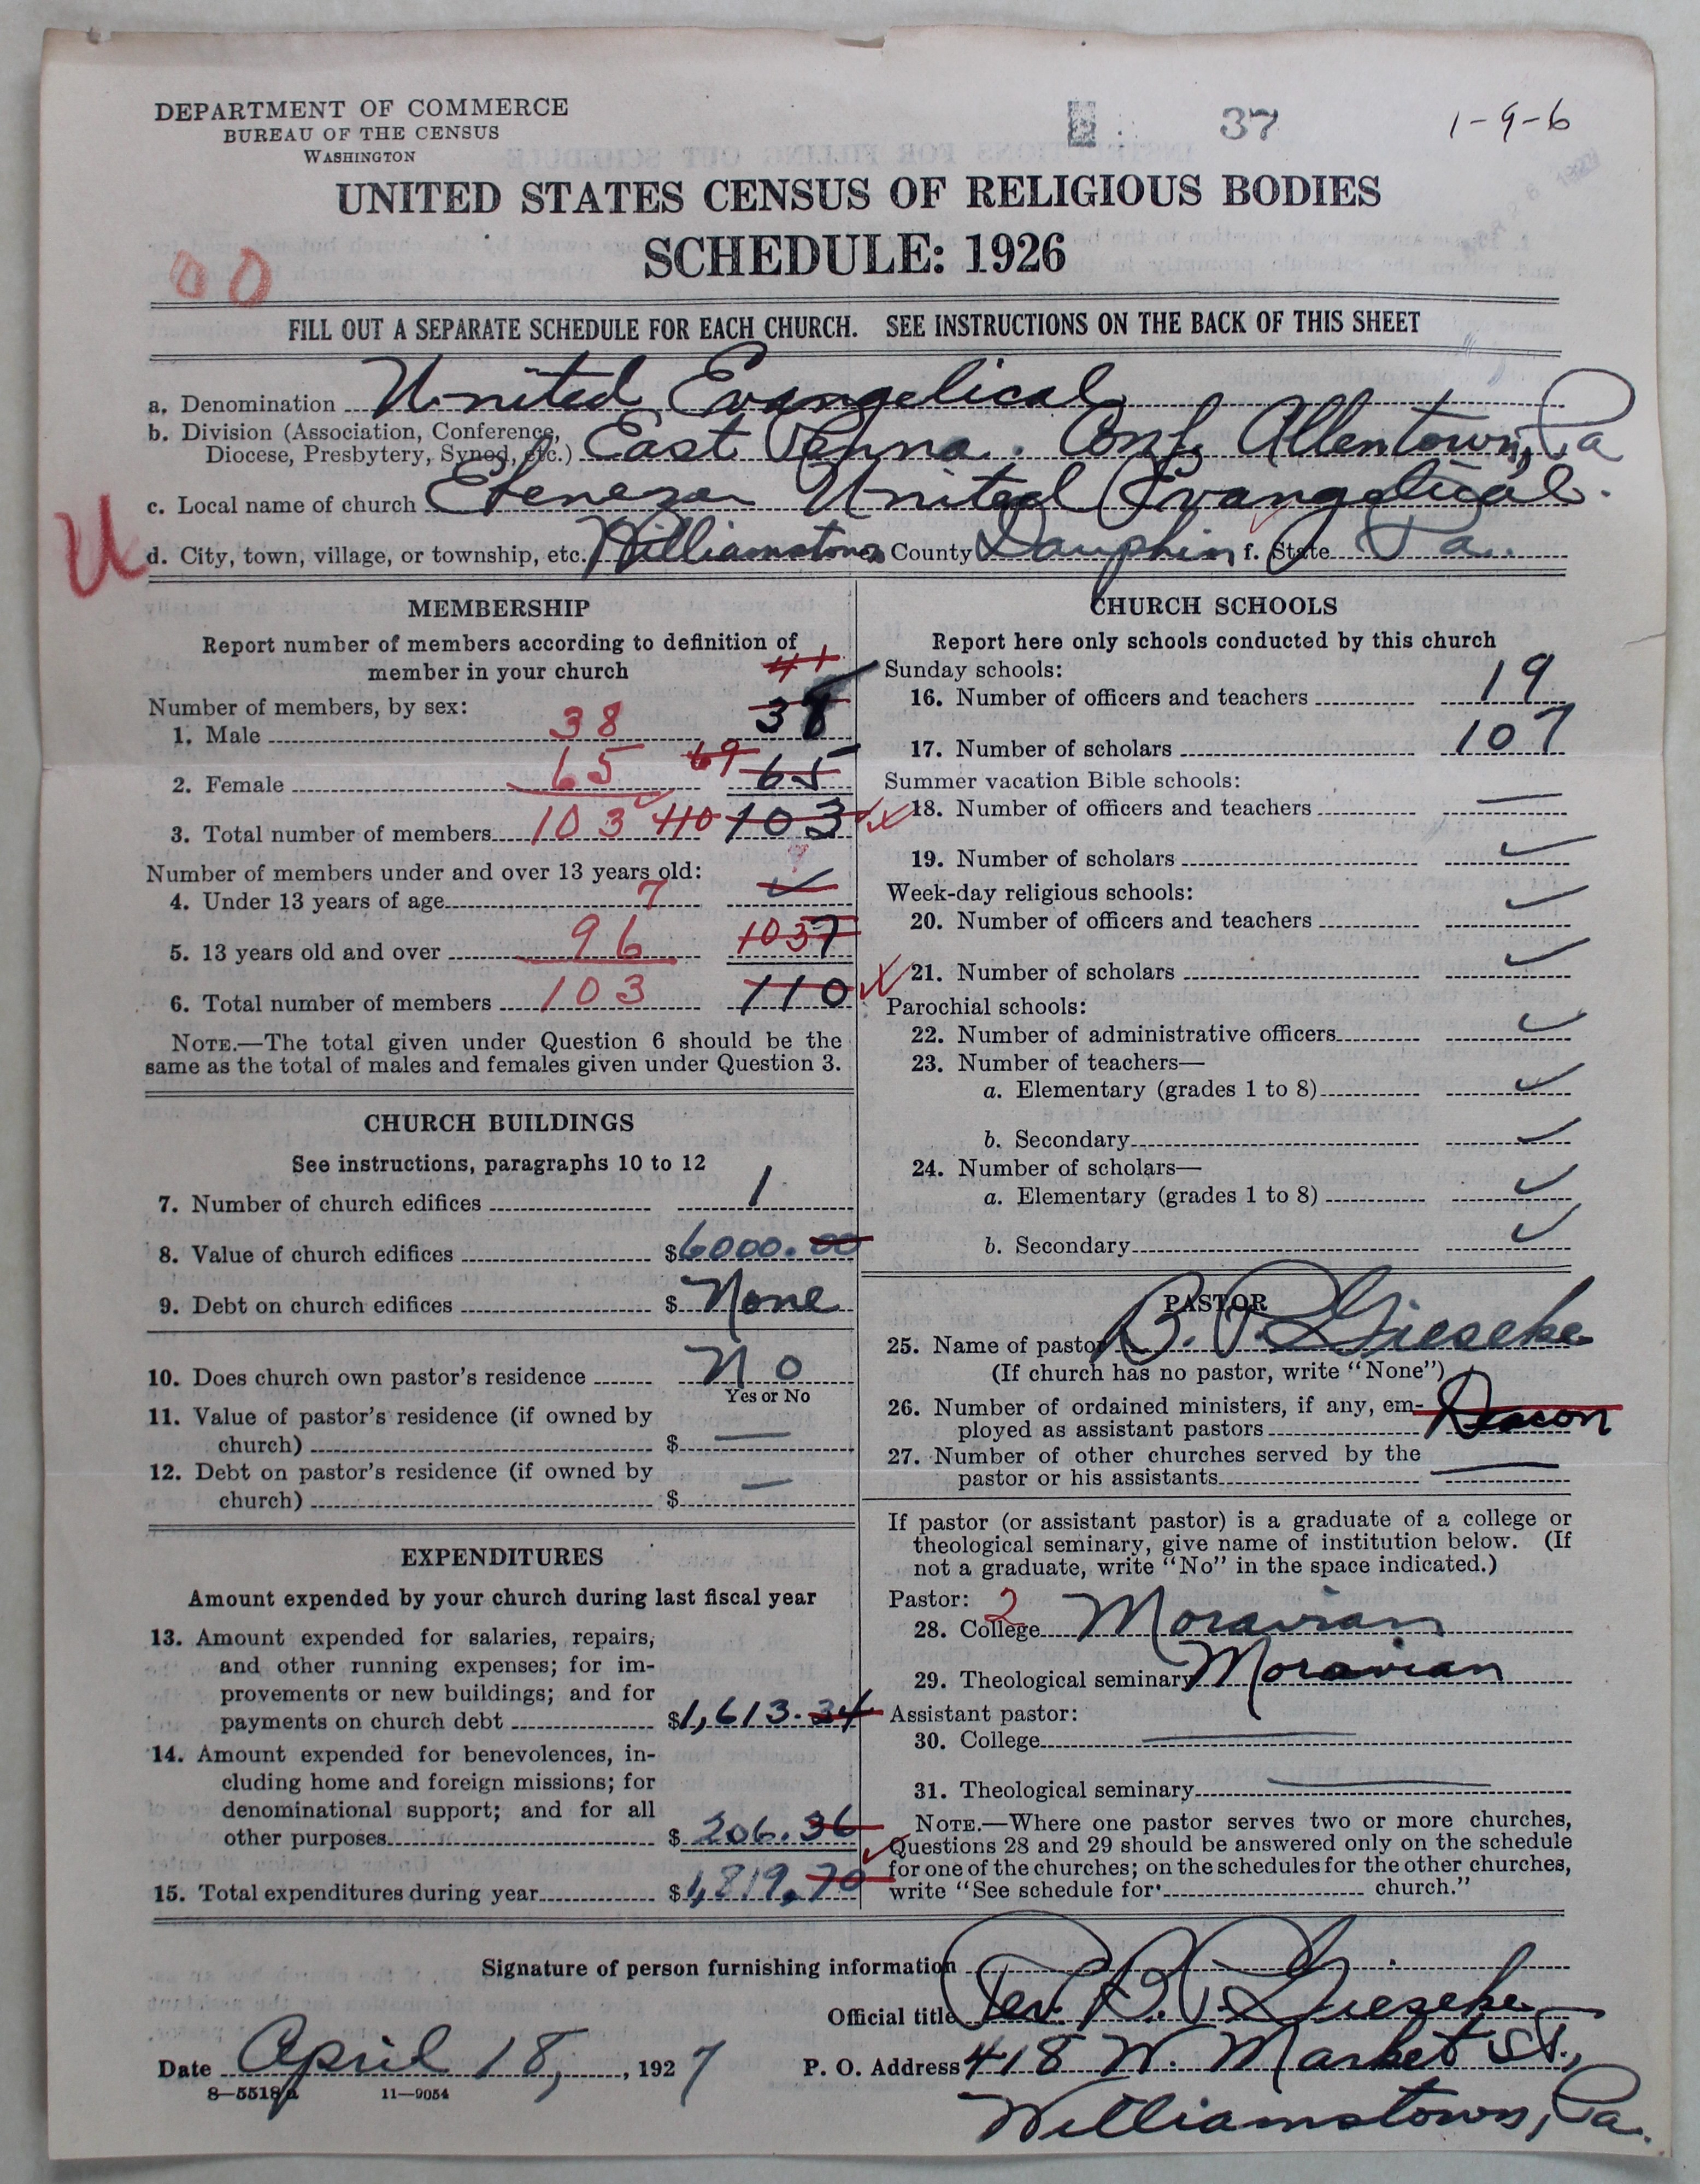 DEPARTMENT OF COMMERCE
BUREAU OF THE CENSUS
WASHINGTON
37
1-9-6
UNITED STATES CENSUS OF RELIGIOUS BODIES
SCHEDULE: 1926
00
FILL OUT A SEPARATE SCHEDULE FOR EACH CHURCH. SEE INSTRUCTIONS ON THE BACK OF THIS SHEET
a. Denomination United Evangelical
b. Division (Association, Conference,
Diocese, Presbytery, Synod, etc.) East Penna. Conf, Allentown, Pa
c. Local name of church Ebenezer United Evangelical.
U
d. City, town, village, or township, etc. Williamstown County Dauphin f. State Pa.
MEMBERSHIP
Report number of members according to definition of
member in your church
41
Number of members, by sex:
1. Male 38 38
2. Female 65 69 65
3. Total number of members 103 110 103
Number of members under and over 13 years old:
4. Under 13 years of age 7
5. 13 years old and over 96 1037
6. Total number of members 103 110
NOTE.—The total given under Question 6 should be the
same as the total of males and females given under Question 3.
CHURCH BUILDINGS
See instructions, paragraphs 10 to 12
7. Number of church edifices 1
8. Value of church edifices $6000.00
9. Debt on church edifices $ None
10. Does church own pastor's residence No
Yes or No
11. Value of pastor's residence (if owned by
church) $ —
12. Debt on pastor's residence (if owned by
church) $ —
EXPENDITURES
Amount expended by your church during last fiscal year
13. Amount expended for salaries, repairs,
and other running expenses; for im-
provements or new buildings; and for
payments on church debt $1,613.34
14. Amount expended for benevolences, in-
cluding home and foreign missions; for
denominational support; and for all
other purposes $ 206.36
15. Total expenditures during year $1,819.70
CHURCH SCHOOLS
Report here only schools conducted by this church
Sunday schools:
16. Number of officers and teachers 19
17. Number of scholars 107
Summer vacation Bible schools:
18. Number of officers and teachers —
19. Number of scholars ✓
Week-day religious schools:
20. Number of officers and teachers ✓
21. Number of scholars ✓
Parochial schools:
22. Number of administrative officers ✓
23. Number of teachers—
a. Elementary (grades 1 to 8) ✓
b. Secondary ✓
24. Number of scholars—
a. Elementary (grades 1 to 8) ✓
b. Secondary ✓
PASTOR
25. Name of pastor B. P. Gieseke
(If church has no pastor, write "None")
26. Number of ordained ministers, if any, em-
ployed as assistant pastors Deacon
27. Number of other churches served by the
pastor or his assistants —
If pastor (or assistant pastor) is a graduate of a college or
theological seminary, give name of institution below. (If
not a graduate, write "No" in the space indicated.)
Pastor: 2
28. College Moravian
29. Theological seminary Moravian
Assistant pastor:
30. College —
31. Theological seminary —
NOTE.—Where one pastor serves two or more churches,
Questions 28 and 29 should be answered only on the schedule
for one of the churches; on the schedules for the other churches,
write "See schedule for church."
Signature of person furnishing information
Official title Rev. B. P. Gieseke
Date April 18, , 1927
P. O. Address 418 W. Market St.,
8—5518a 11—9054
Williamstown, Pa.